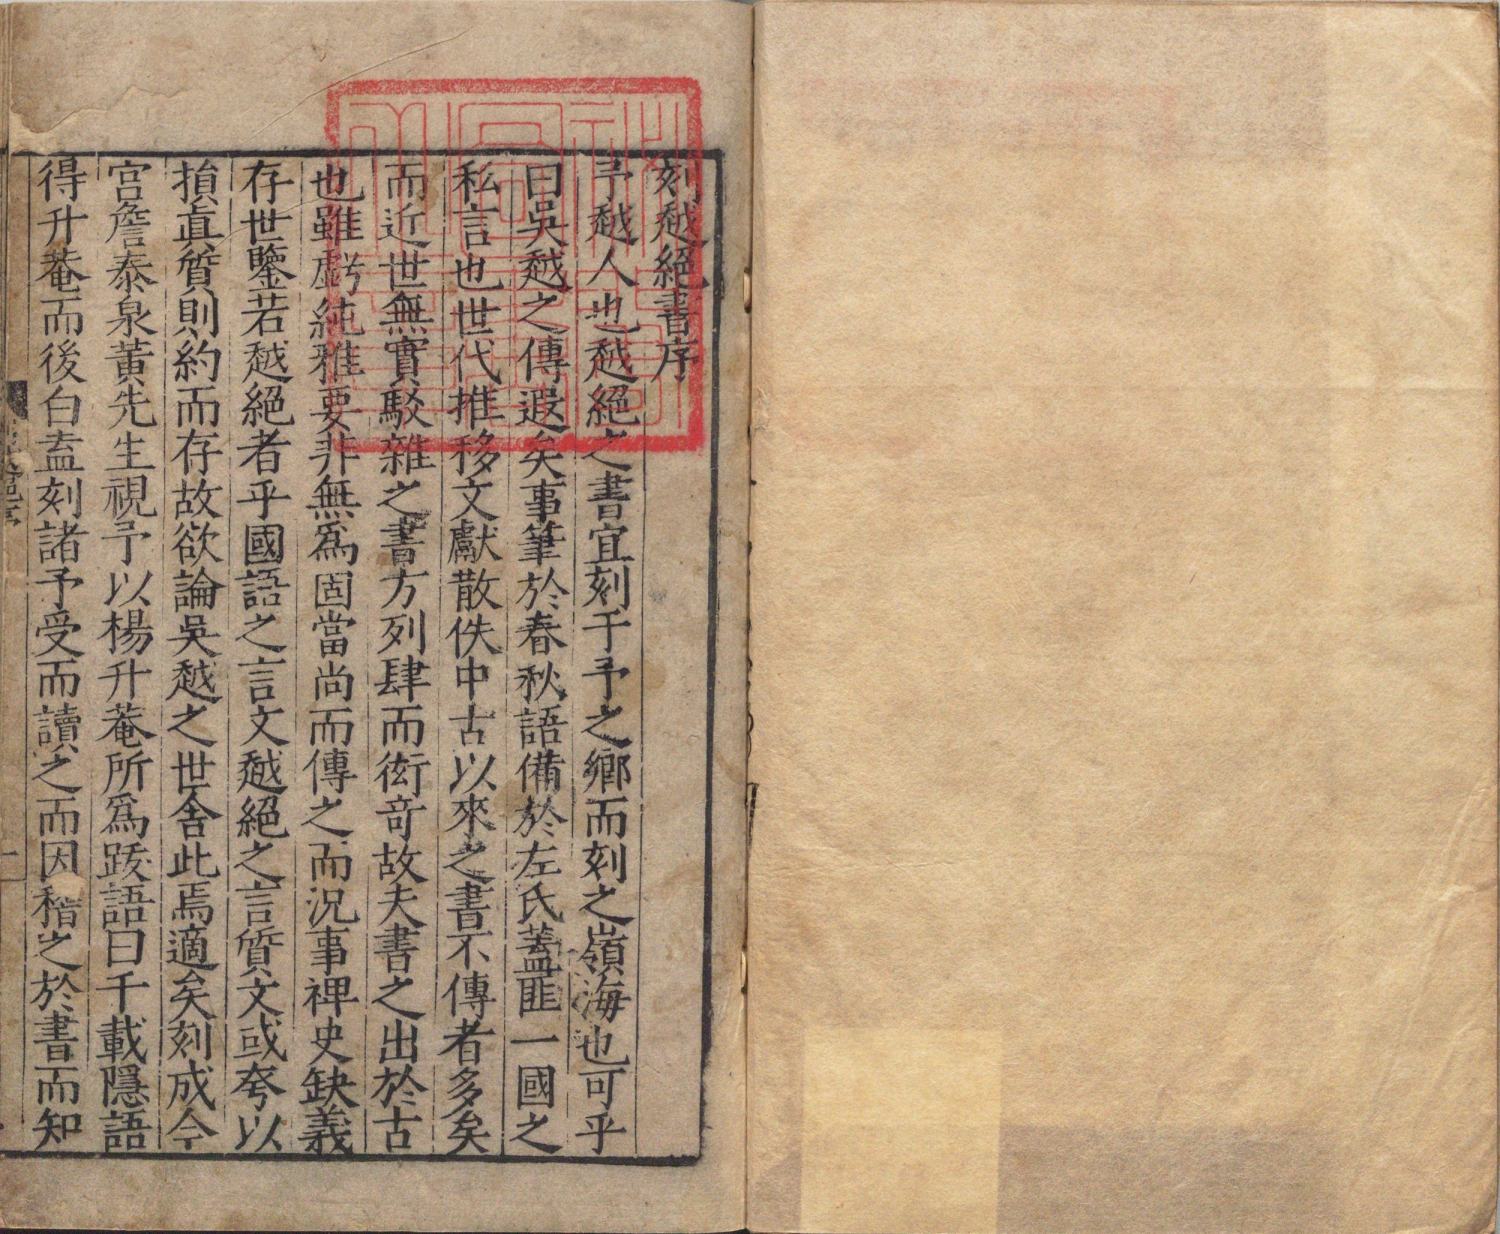 刻越絕書序
予越人也越絕之書宜刻于予之鄉而刻之嶺海也可乎
曰吳越之傳遐矣事筆於春秋語備於左氏蓋匪一國之
私言也世代推移文獻散佚中古以來之書不傳者多矣
而近世無實駁雜之書方列肆而衒竒故夫書之出於古
也雖虧純雅要非無爲固當尚而傳之而況事裨史缺義
存世鑒若越絕者乎國語之言文越絕之言質文或夸以
損眞質則約而存故欲論吳越之世舍此焉適矣刻成今
宮詹泰泉黃先生視予以楊升菴所爲跋語曰千載隱語
得升菴而後白盍刻諸予受而讀之而因稽之於書而知